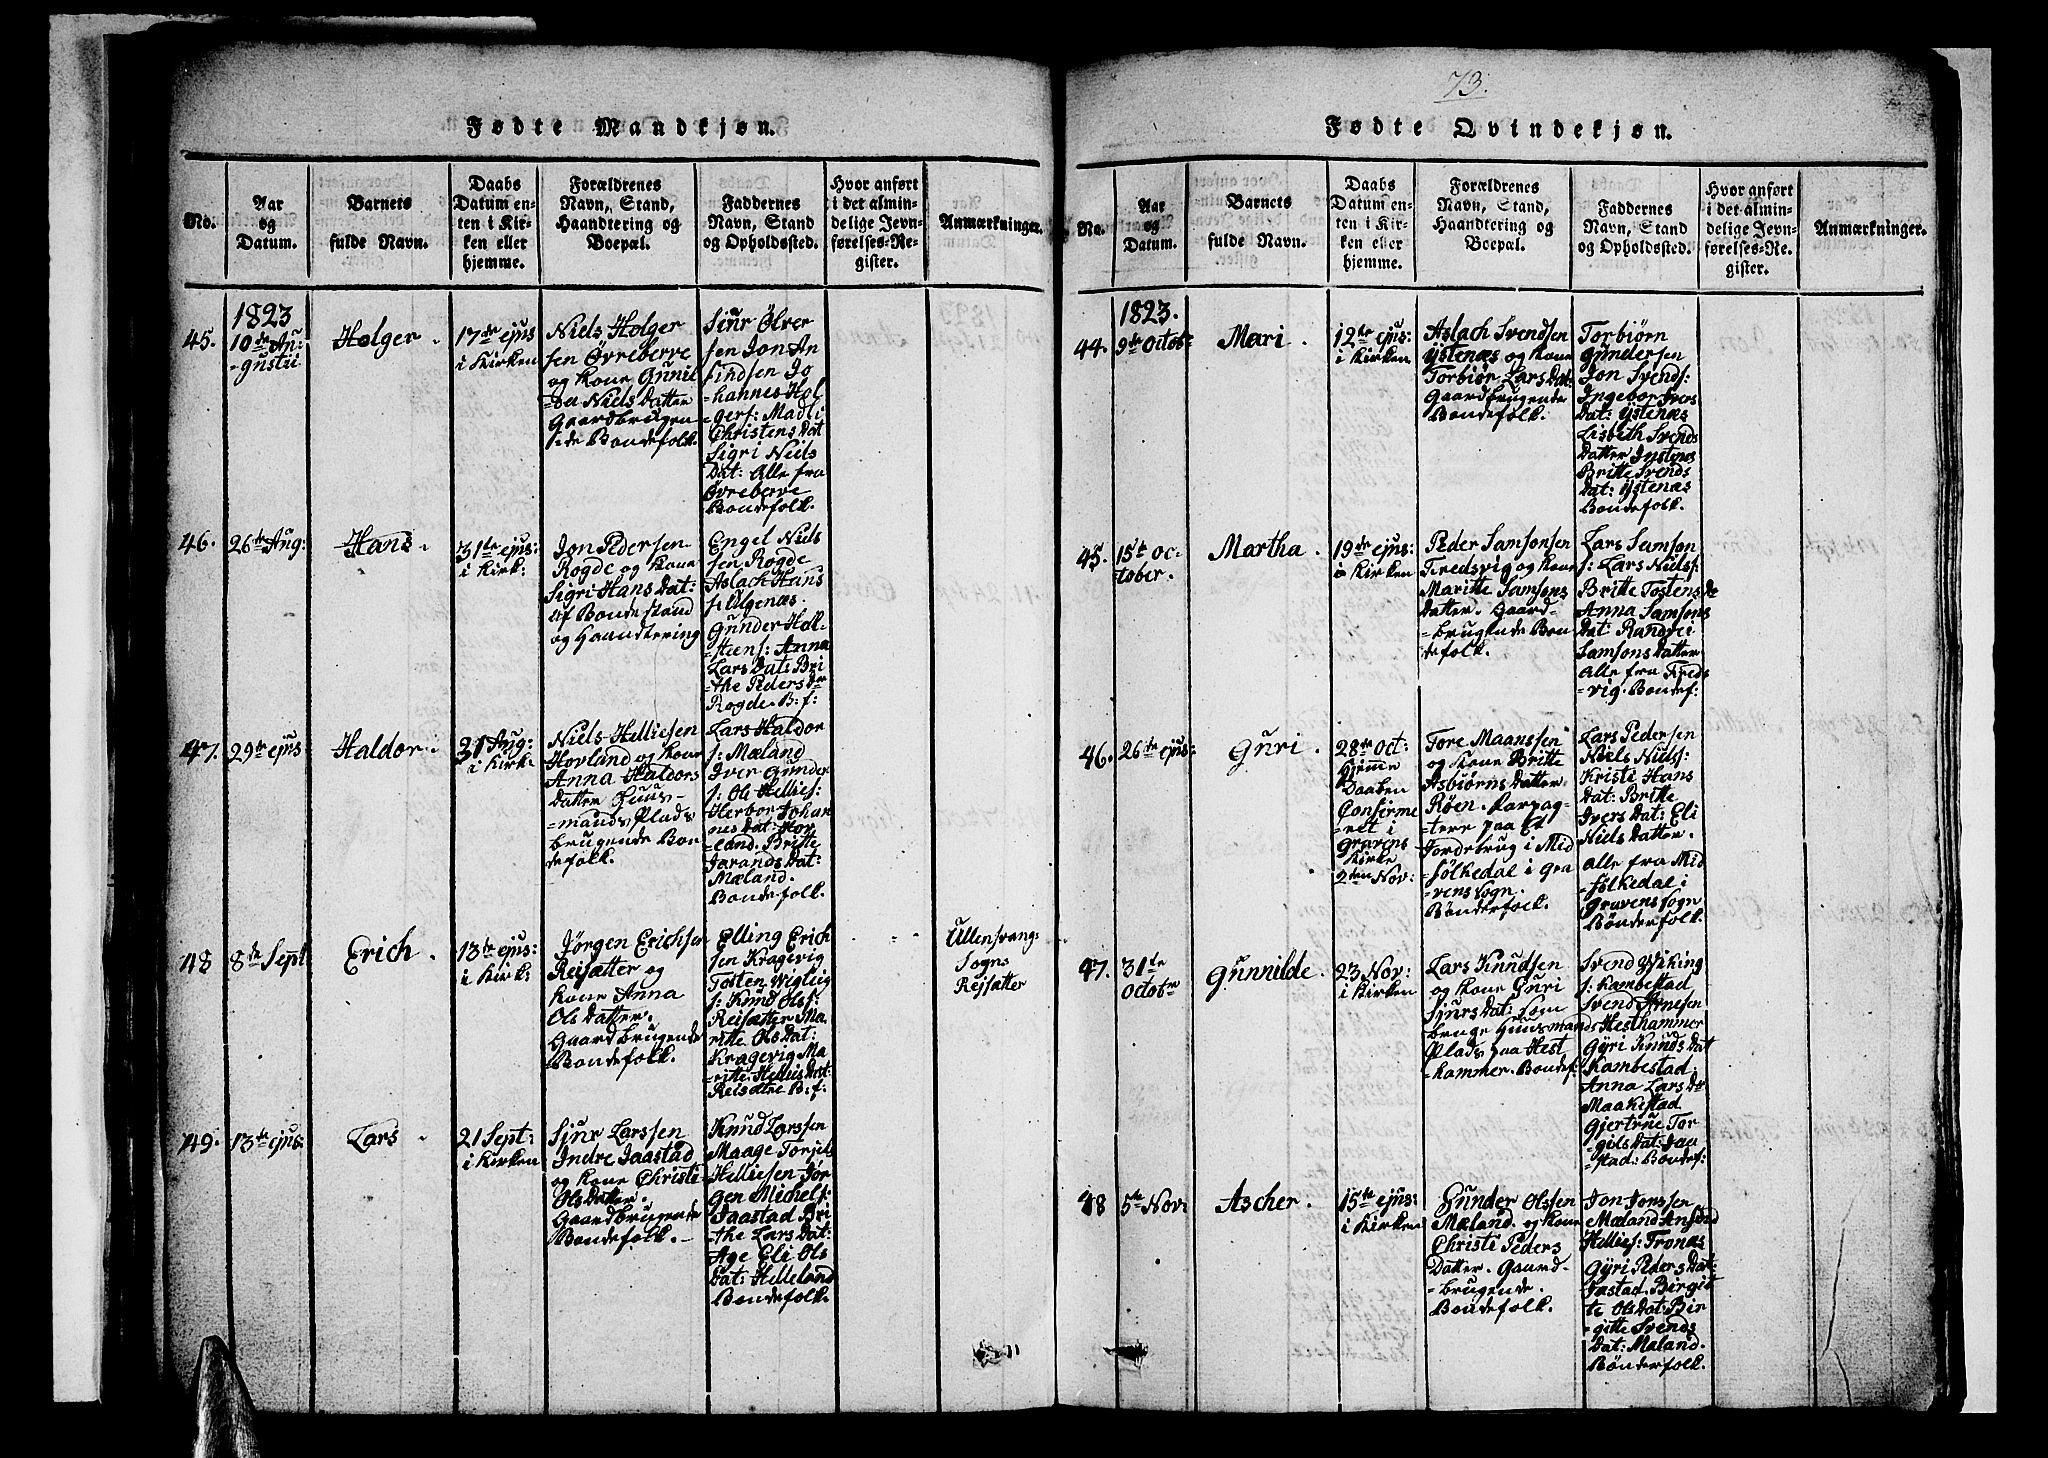 73.
Fødte Mandkjøn.
No.
Aar
og
Datum.
Barnets
fulde Navn.
Daabs
Datum en-
ten i Kir-
ken eller
hjemme.
Forældrenes
Navn, Stand,
Haandtering og
Boepæl.
Faddernes
Navn, Stand
og Opholdssted.
Hvor anført
i det almin-
delige Jevn-
førelses-Re-
gister.
Anmærkninger.
1823
45.
10de Au-
-gustii
Holger
17de ejus
i Kirken
Niels Holger
sen Övreberve
og Kone Gunil
-da Niels Datter
Gaardbrugen
-de Bondefolk.
Siur Ölver
sen Jon An
findsen Jo
-hannes Hol
-gers: Madli
Christens Dat
Sigri Niels
Dat: Alle fra
Övreberve
Bondefolk.
46.
26de Aug:
Hans.
31te ejus:
i Kirk:
Jon Pedersen
Rogde og Kone
Sigri Hans Dat:
af Bondestand
og Haandtering
Engel Niels
sen Rogde
Aslach Hans
s: Algenæs.
Gunder Hall
-steens: Anna
Lars Dat: Bri
-the Peders Dr
Rogde. B: f:
47.
29de ejus
Haldor.
31 Aug:
i Kirk:
Niels Helliesen
Hovland og Kone
Anna Haldors
Datter Huus-
-mands Plads
brugende Bon
-defolk.
Lars Haldor
s: Mæland
Iver Gunder
s: Ole Hellies:
Herbor Johan
nes Dat: Hov
-land. Britte
Jarands Dat:
Mæland.
Bondefolk.
48
8de Sept
Erich.
13de ejus:
i Kirk:
Jörgen Erichsen
Reisætter og
Kone Anna
Ols Datter.
Gaardbrugende
Bondefolk.
Elling Erich
sen Kragevig
Tosten Viglеig
s: Knud Ols:
Reisætter Ma-
ritte Ols Dat:
Kragevig Ma
-ritte Hellies Dat:
Reisætre B: f:
Ullensvang
Sogns
Rejsætter
49.
13de ejus:
Lars
21 Sept:
i Kirken
Sjur Larssen
Indre Jaastad
og Kone Christi
Ols Datter.
Gaardbrugende
Bondefolk.
Knud Larssen
Maage Torjils
Helliesen Jör
gen Michels:
Jaastad Bri
-the Lars Dat:
Age Eli Ols
Dat: Helleland
Bondefolk.
Fødte Qvindekjøn.
No.
Aar
og
Datum.
Barnets
fulde Navn.
Daabs
Datum en-
ten i Kir-
ken eller
hjemme.
Forældrenes
Navn, Stand,
Haandtering og
Boepæl.
Faddernes
Navn, Stand
og Opholdssted.
Hvor anført
i det almin-
delige Jevn-
førelses-Re-
gister.
Anmærkninger.
1823.
44.
9de Octob:
Mari.
12te ejus:
i Kirken
Aslach Svendsen
Ystenæs og Kone
Torbiör Lars Dat:
Gaardbrugende
Bondefolk.
Torbiörn
Gundersen
Jon Svends:
Ingebor Ivers
Dat: Ystenæs
Lisbeth Svends
Datter Instenæs
Britte Svends
Dat: Ystenæs
Bondefolk.
45.
15de Oc-
tober.
Martha.
19de ejus:
i Kirken
Peder Samsonsen
Fredsvig og Kone
Maritte Samsons
Datter. Gaard-
-brugende Bon
defolk.
Lars Samson
s: Lars Niels:
Britte Tostens Dr
Anna Samsons
Dat: Randvei
Samsons Datter
Alle fra Freds
-vig. Bondef:
46.
26de ejus:
Guri.
28de Oct:
hjemme
Daaben
Confirme
-ret i
Gravens
Kirke
2den Nov:
Tore Maanssen
og Kone Britte
Asbiörns Datter
Röen. Forpag-
-tere paa Et
Jordebrug i Mid
-fölkedal i Gra
-vens Sogn.
Bönderfolk.
Lars Pedersen
Niels Niels:
Kristi Hans
Dat: Britte
Ivers Dat: Eli
Niels Datter.
Alle fra Mid
-fölkedal i
Gravens Sogn
Bönderfolk.
47.
31te
Octobr
Gunnilde.
23 Nov:
i Kirken
Lars Knudsen
og Kone Guri
Sjurs Dat: som
bruge Huusmands
Plads paa Hest
-hammer. Bondef:
Svend Viking
s: Kambestad
Svend Arnesen
Hesthammer
Gyri Knuds Dat
Kambestad.
Anna Lars Dr
Maakestad
Gjertrue Tor
-gils Dat: Aa
-stad: Bondef:
48
5te Nov:
Ascher.
15te ejus:
i Kirken
Gunder Olssen
Mæland. og Kone
Christi Peders
Datter. Gaard-
-brugende.
Bondefolk.
Jon Jonssen
Mæland Amund
Hellies: Tronæs
Gyri Peders Dat:
Jastad. Birgit
-te Ols Dat: Bir
-gitte Svends
Dat: Mæland.
Bönderfolk.